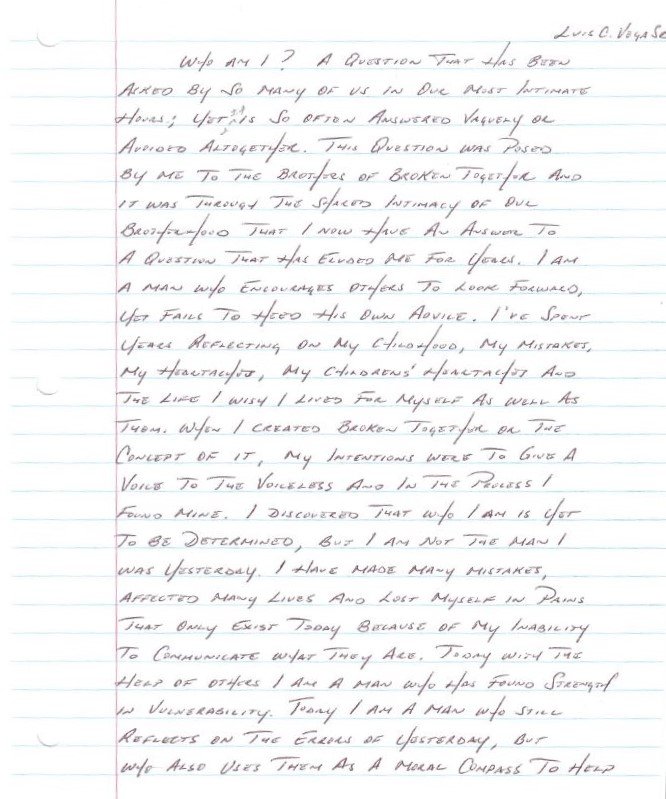 Luis C. Vega Sr
Who Am I? A Question That Has Been
Asked By So Many Of Us In Our Most Intimate
Hours; Yet is So Often Answered Vaguely Or
Avoided Altogether. This Question Was Posed
By Me To The Brothers Of Broken Together And
It Was Through The Shared Intimacy Of Our
Brotherhood That I Now Have An Answer To
A Question That Has Eluded Me For Years. I Am
A Man Who Encourages Others To Look Forward,
Yet Fails To Heed His Own Advice. I've Spent
Years Reflecting On My Childhood, My Mistakes,
My Heartaches, My Childrens' Heartaches And
The Life I Wish I Lived For Myself As Well As
Them. When I Created Broken Together Or The
Concept Of It, My Intentions Were To Give A
Voice To The Voiceless And In The Process I
Found Mine. I Discovered That Who I Am Is Yet
To Be Determined, But I Am Not The Man I
Was Yesterday. I Have Made Many Mistakes,
Affected Many Lives And Lost Myself In Pains
That Only Exist Today Because Of My Inability
To Communicate What They Are. Today With The
Help Of Others I Am A Man Who Has Found Strength
In Vulnerability. Today I Am A Man Who Still
Reflects On The Errors Of Yesterday, But
Who Also Uses Them As A Moral Compass To Help